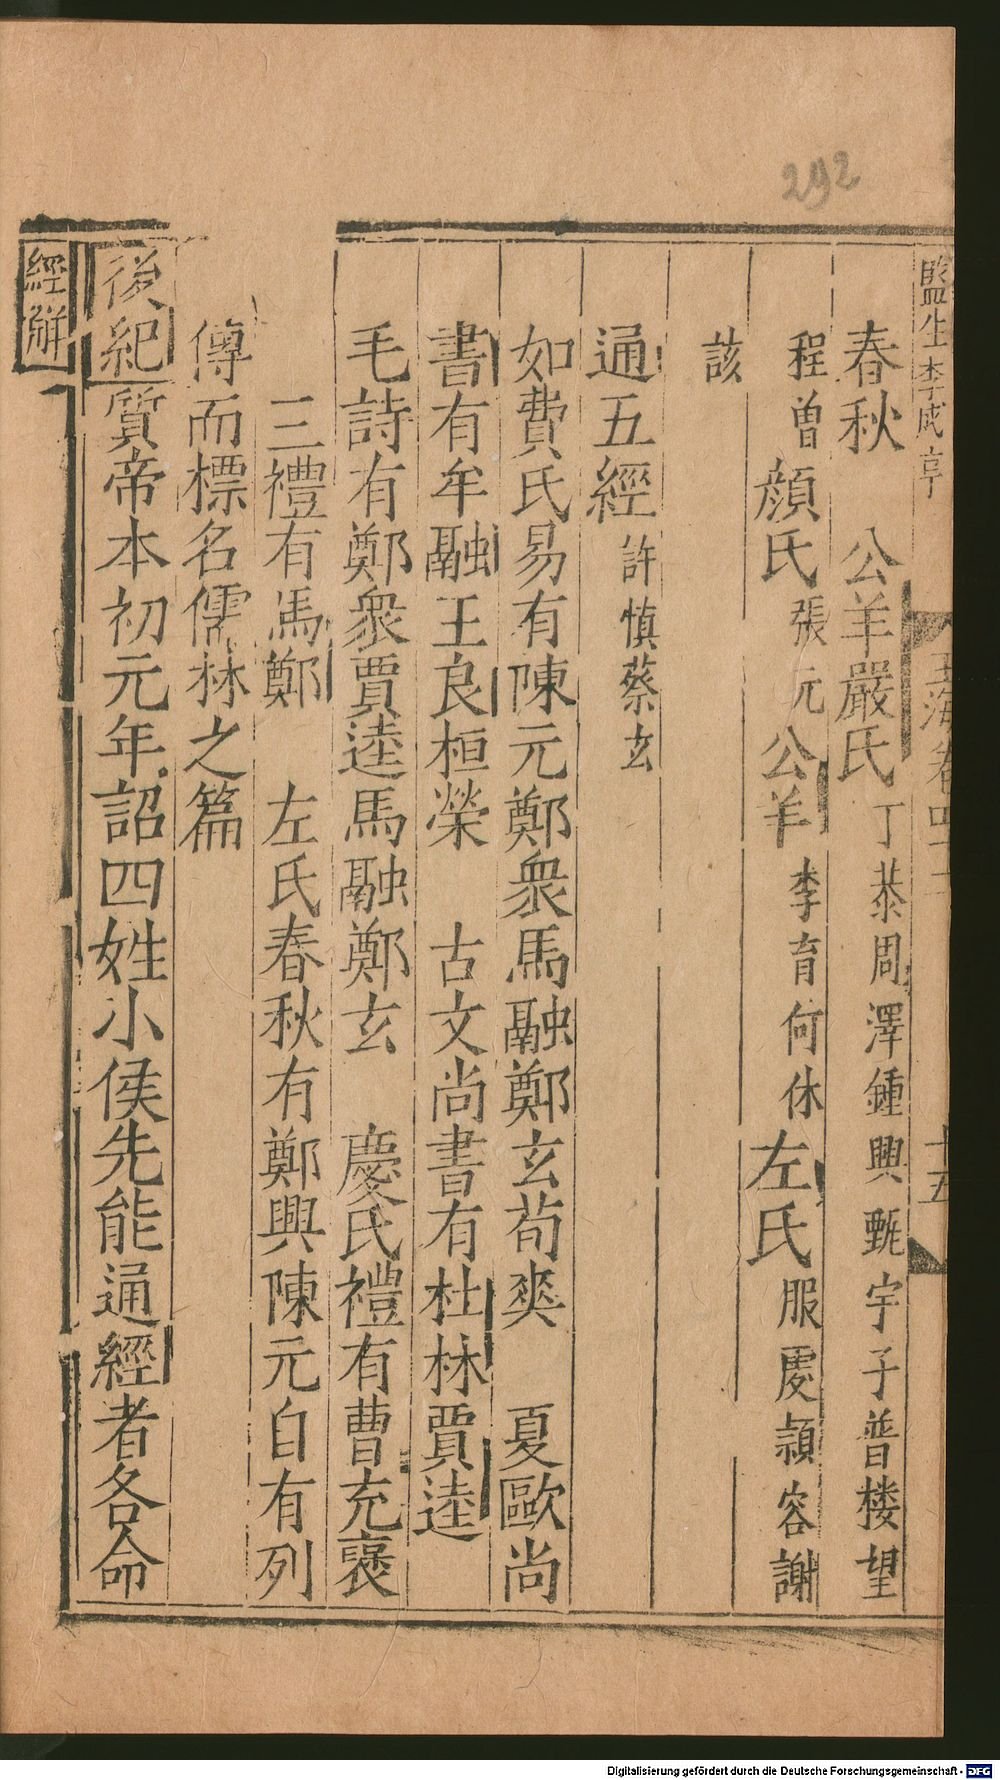 292
監生李成亨
玉海卷四十二
十五
春秋 公羊嚴氏丁恭周澤鍾興甄宇子普楼望
程曾顔氏張玩公羊李育何休左氏服䖍頴容謝
該
通五經許慎蔡玄
如費氏易有陳元鄭衆馬融鄭玄荀爽 夏歐尚
書有牟融王良桓榮 古文尚書有杜林賈逵
毛詩有鄭衆賈逵馬融鄭玄 慶氏禮有曹充褒
三禮有馬鄭 左氏春秋有鄭興陳元自有列
傳而標名儒林之篇
後紀質帝本初元年詔四姓小侯先能通經者各命
經解
Digitalisierung gefördert durch die Deutsche Forschungsgemeinschaft - DFG